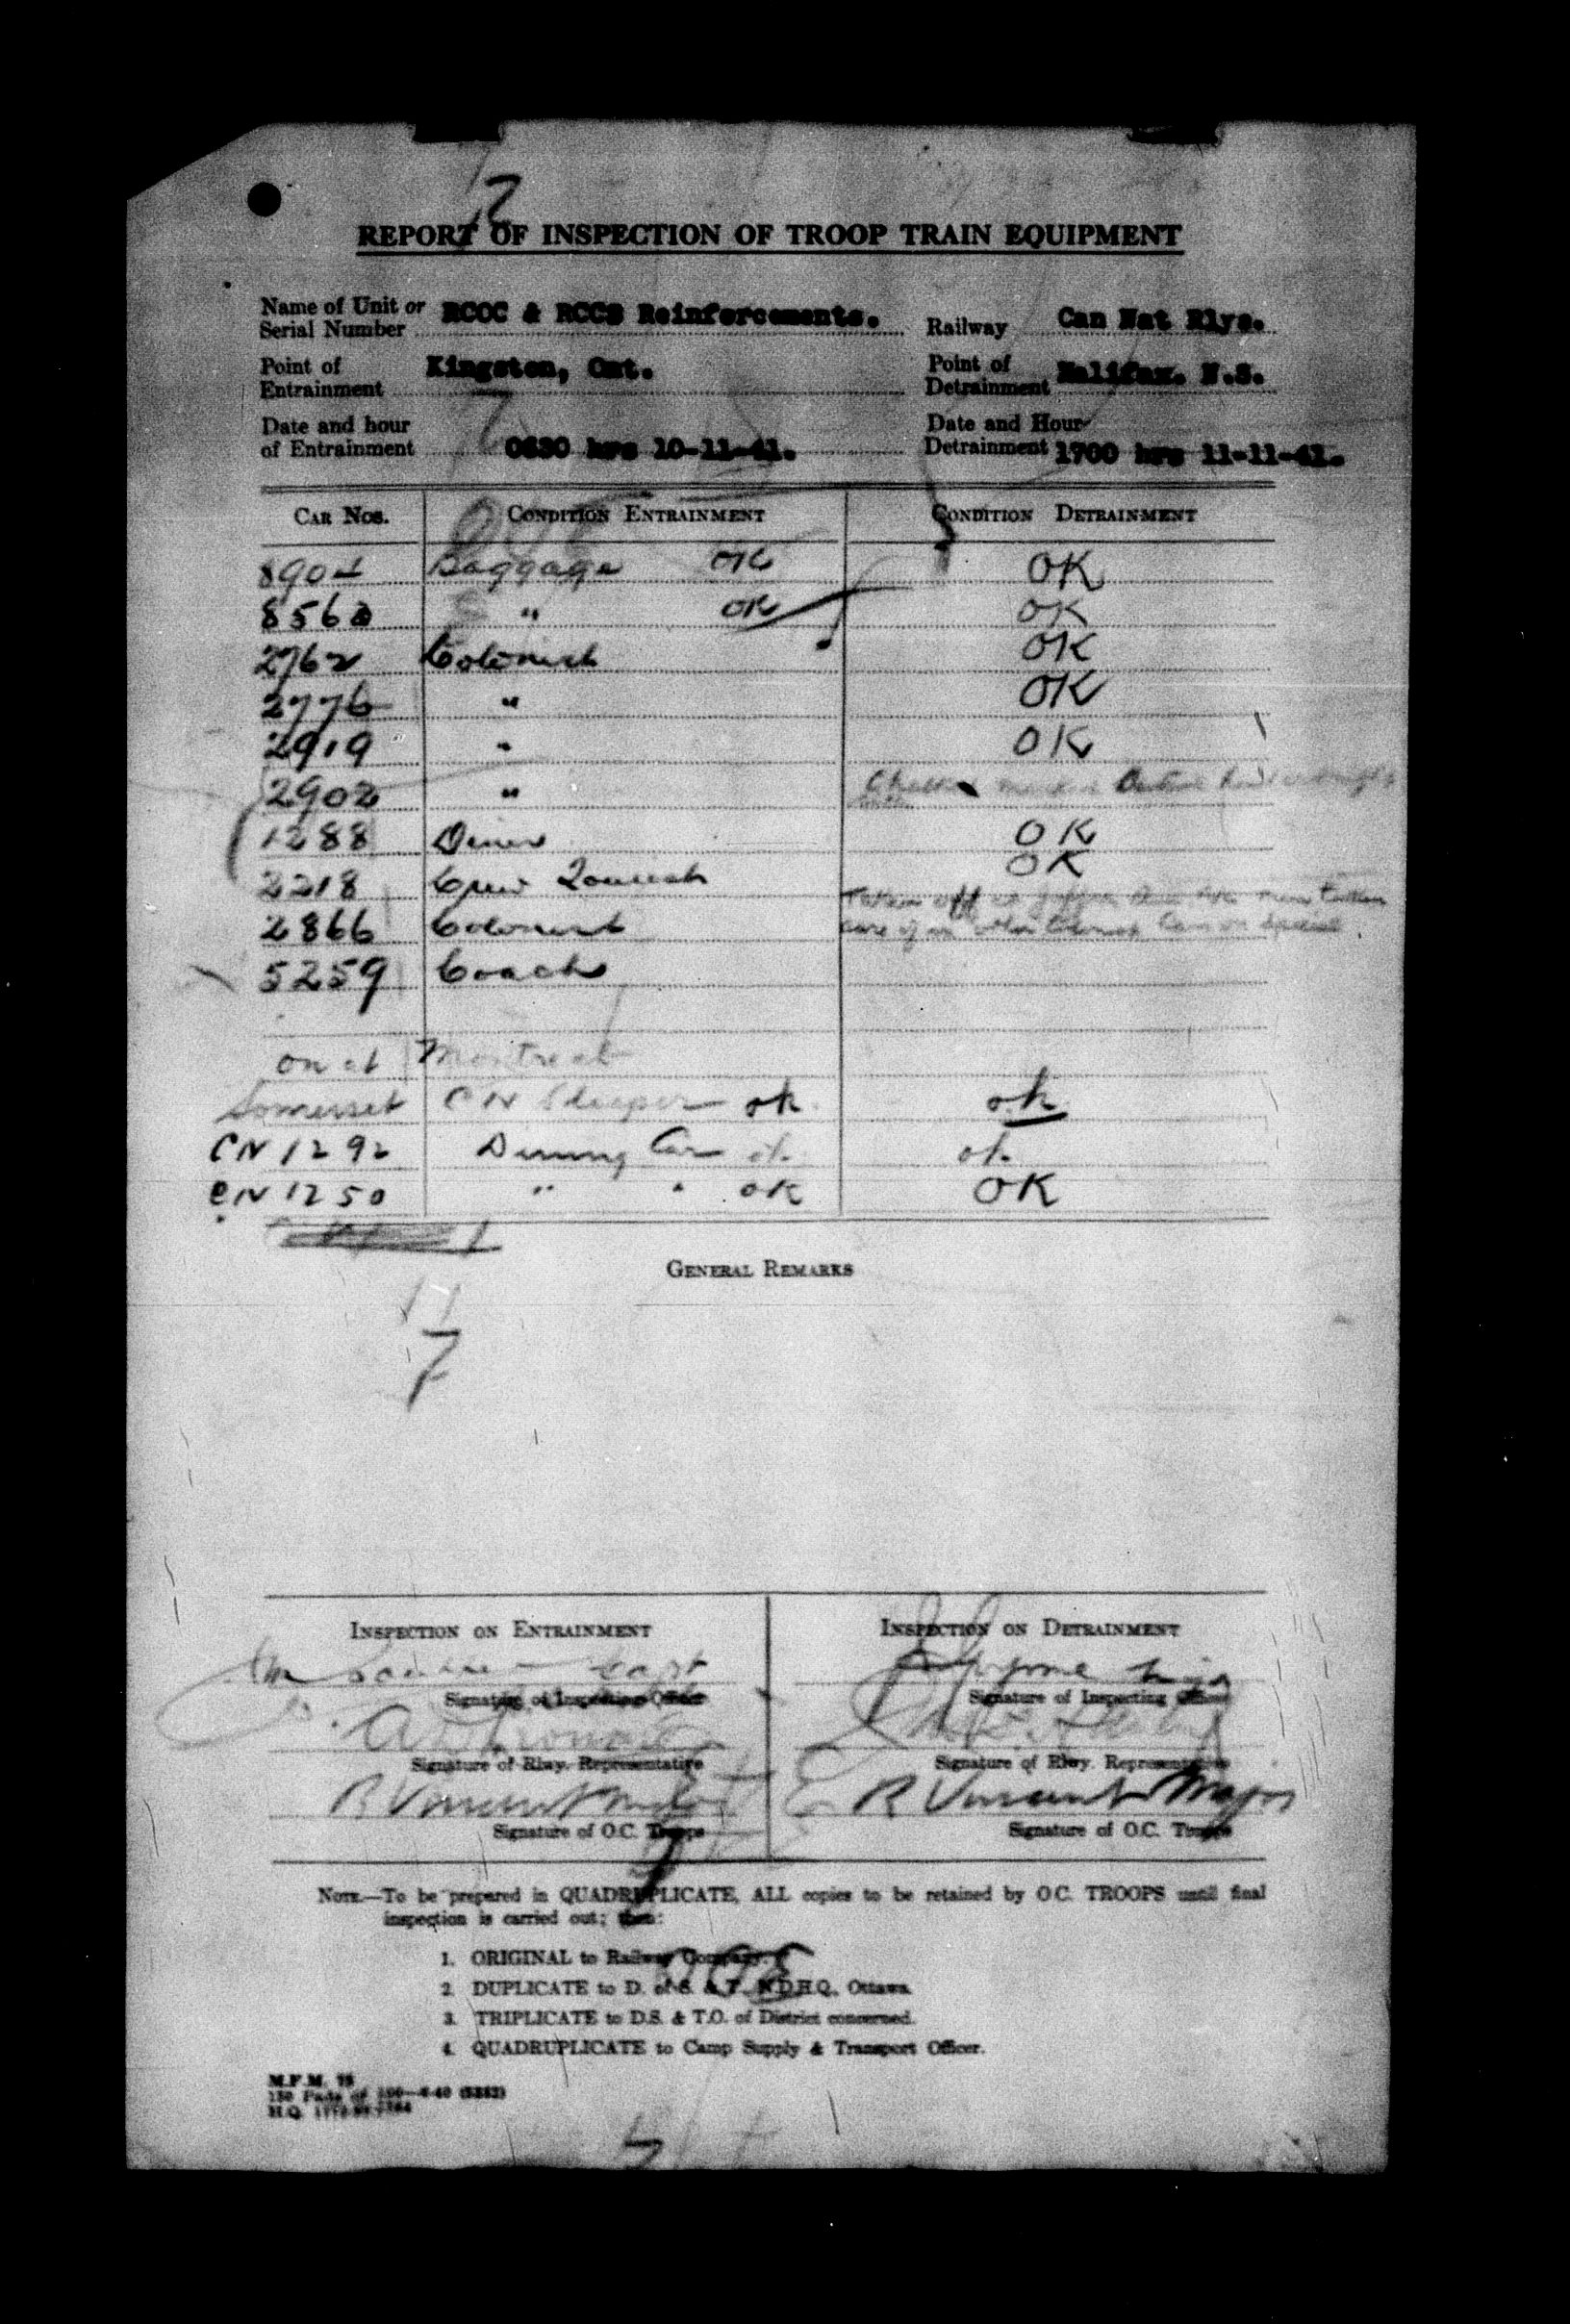 REPORT OF INSPECTION OF TROOP TRAIN EQUIPMENT
Name of Unit or Serial Number RCOC & RCCS Reinforcements. Railway Can Nat Rlys.
Point of Entrainment Kingston, Ont. Point of Detrainment Halifax. N.S.
Date and hour of Entrainment 0630 hrs 10-11-41. Date and Hour Detrainment 1700 hrs 11-11-41.
CAR NOS. CONDITION ENTRAINMENT CONDITION DETRAINMENT
Baggage OK OK
" OK OK
2762 Colonist OK
2776 " OK
2919 " OK
2902 "
1288 Diner OK
2218 OK
2866 Colonist Taken off
5259 Coach
on at Montreal
Somerset CN Sleeper ok ok
CN 1292 Dining Car ok ok
CN 1250 " " OK OK
GENERAL REMARKS
7
INSPECTION ON ENTRAINMENT INSPECTION ON DETRAINMENT
Capt
Signature of Inspecting Officer Signature of Inspecting Officer
Signature of Rlwy. Representative Signature of Rlwy. Representative
R Vincent Major R Vincent Major
Signature of O.C. Troops Signature of O.C. Troops
NOTE.—To be prepared in QUADRUPLICATE, ALL copies to be retained by O.C. TROOPS until final
inspection is carried out; then:
1. ORIGINAL to Railway Company.
2. DUPLICATE to D. of S. & T. N.D.H.Q., Ottawa.
3. TRIPLICATE to D.S. & T.O. of District concerned.
4. QUADRUPLICATE to Camp Supply & Transport Officer.
M.F.M.
H.Q.